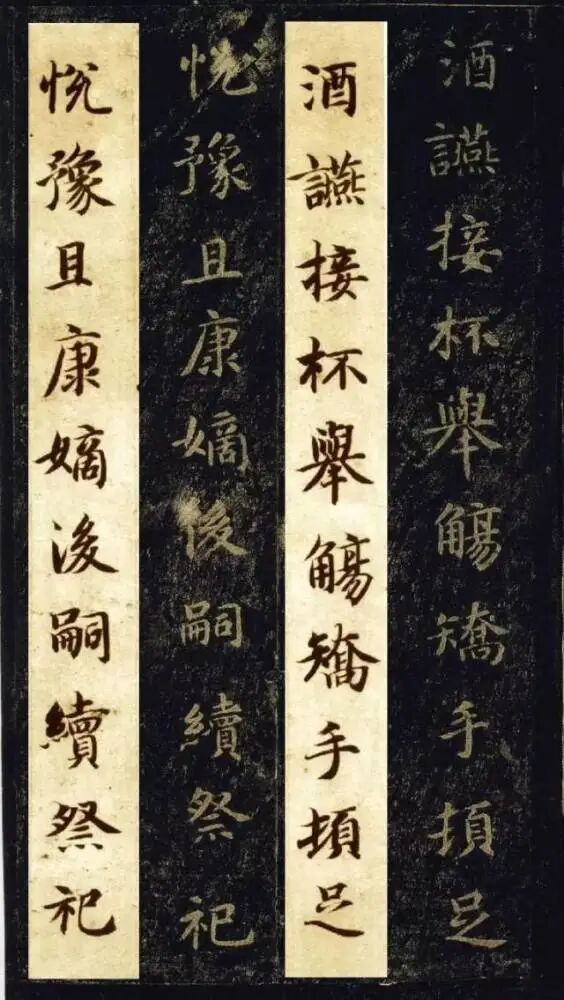 酒讌接杯舉觴矯手頓足
酒讌接杯舉觴矯手頓足
悦豫且康嫡後嗣續祭祀
悦豫且康嫡後嗣續祭祀